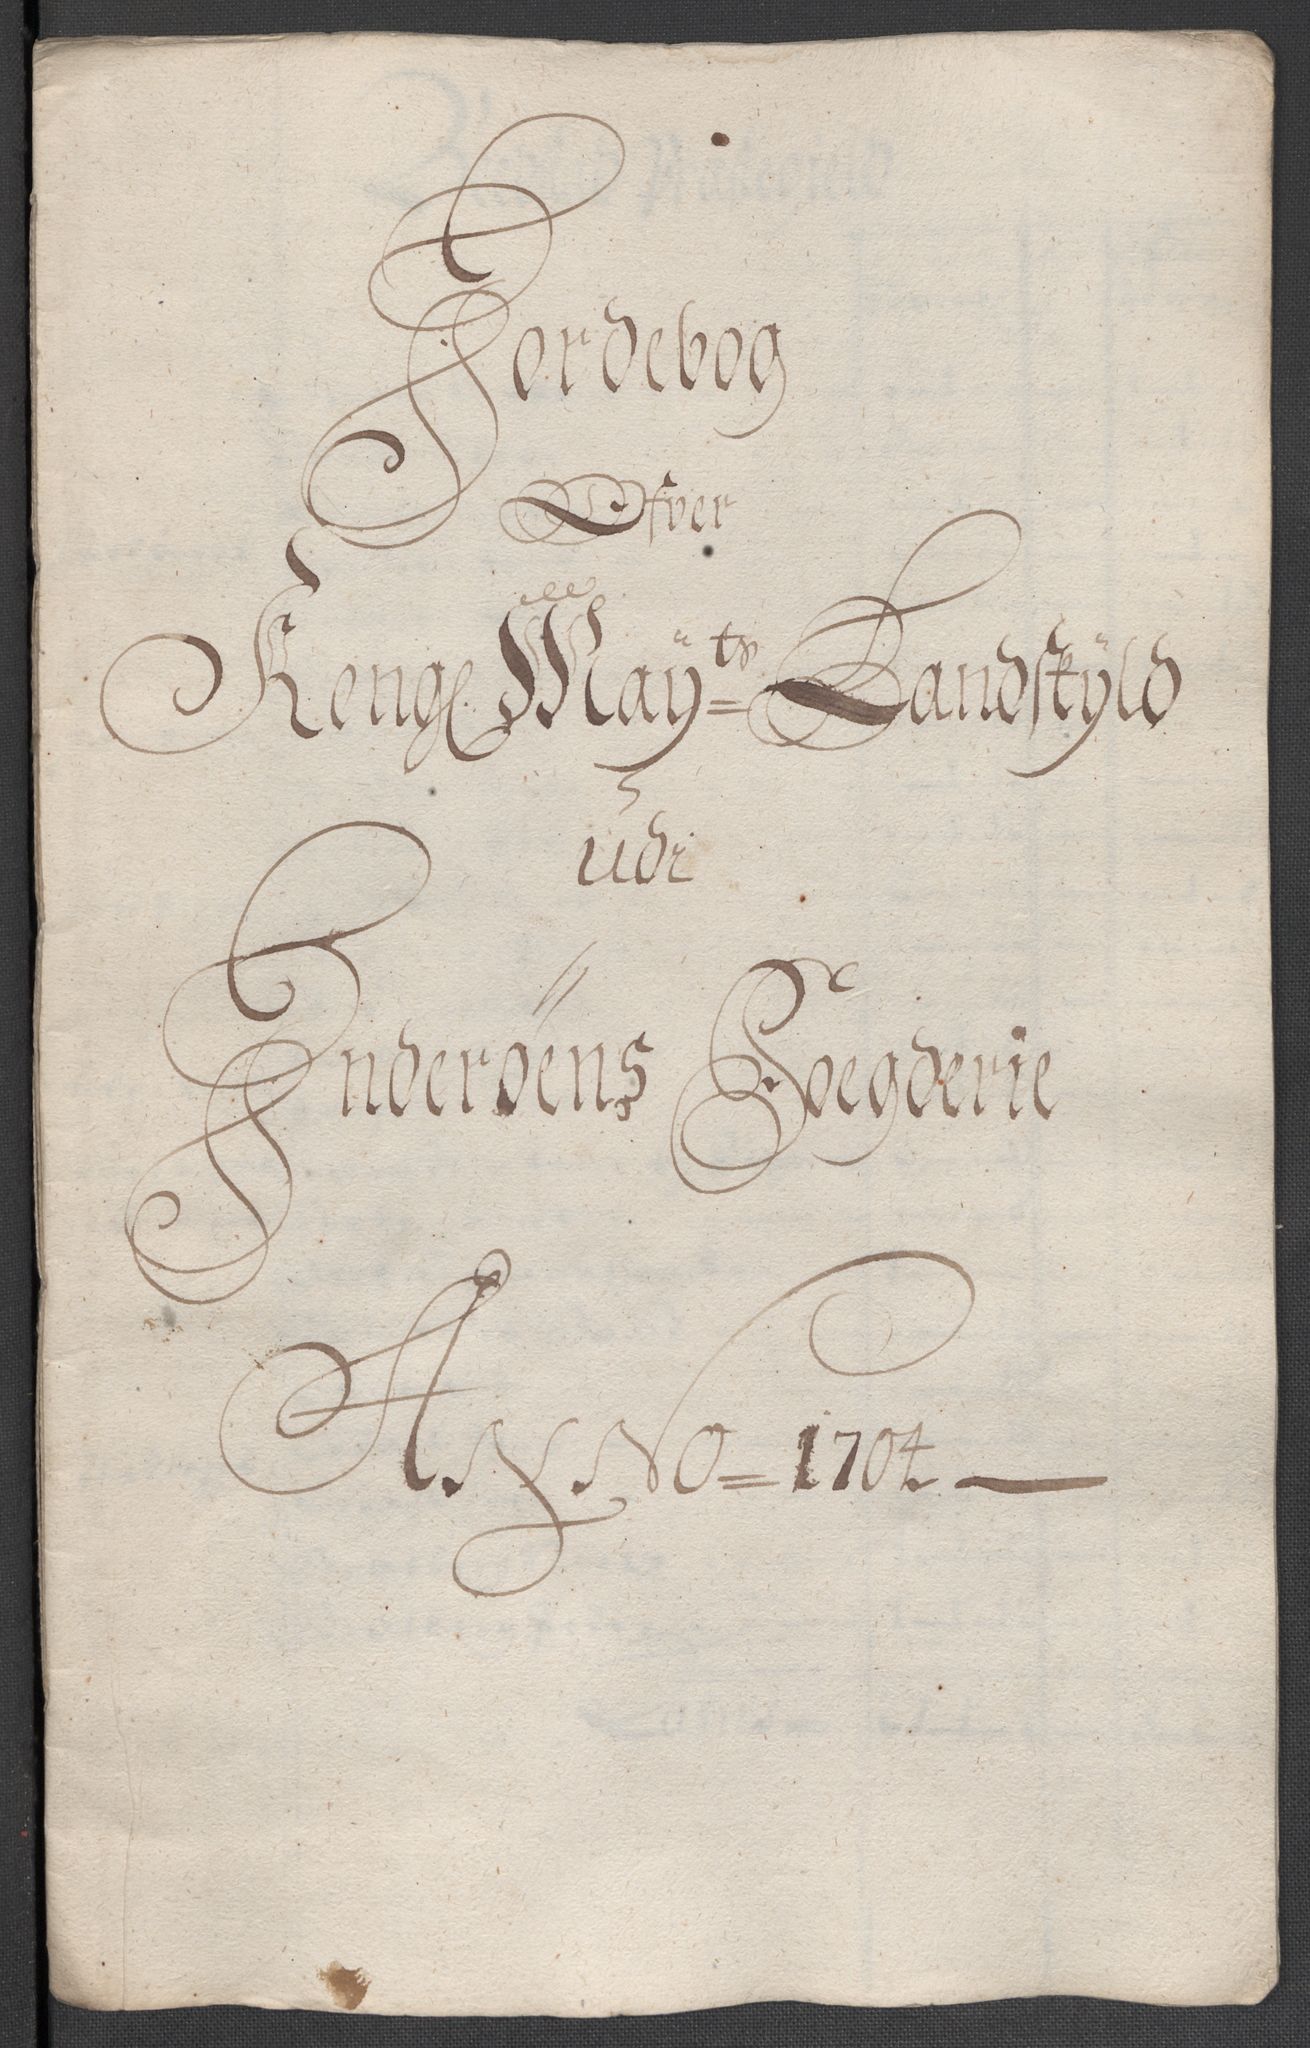 Jordebog
Ofver
Kongl Mayts Landskyld
udi
Inderöens Foegderie
ANNO 1704